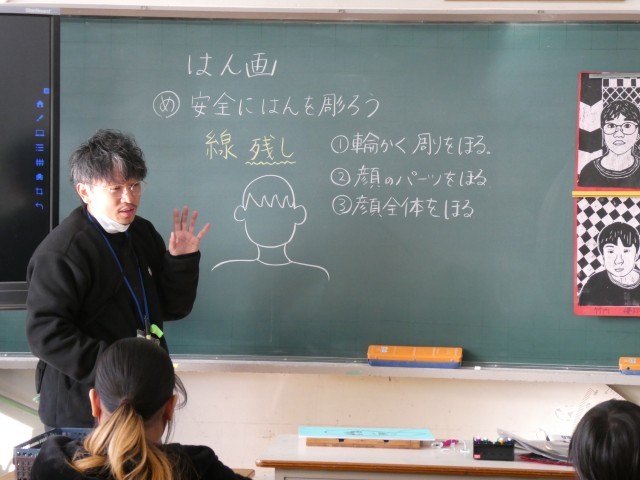 はん画
め 安全にはんを彫ろう
線 残し
①輪かく周りをほる。
②顔のパーツをほる
③顔全体をほる